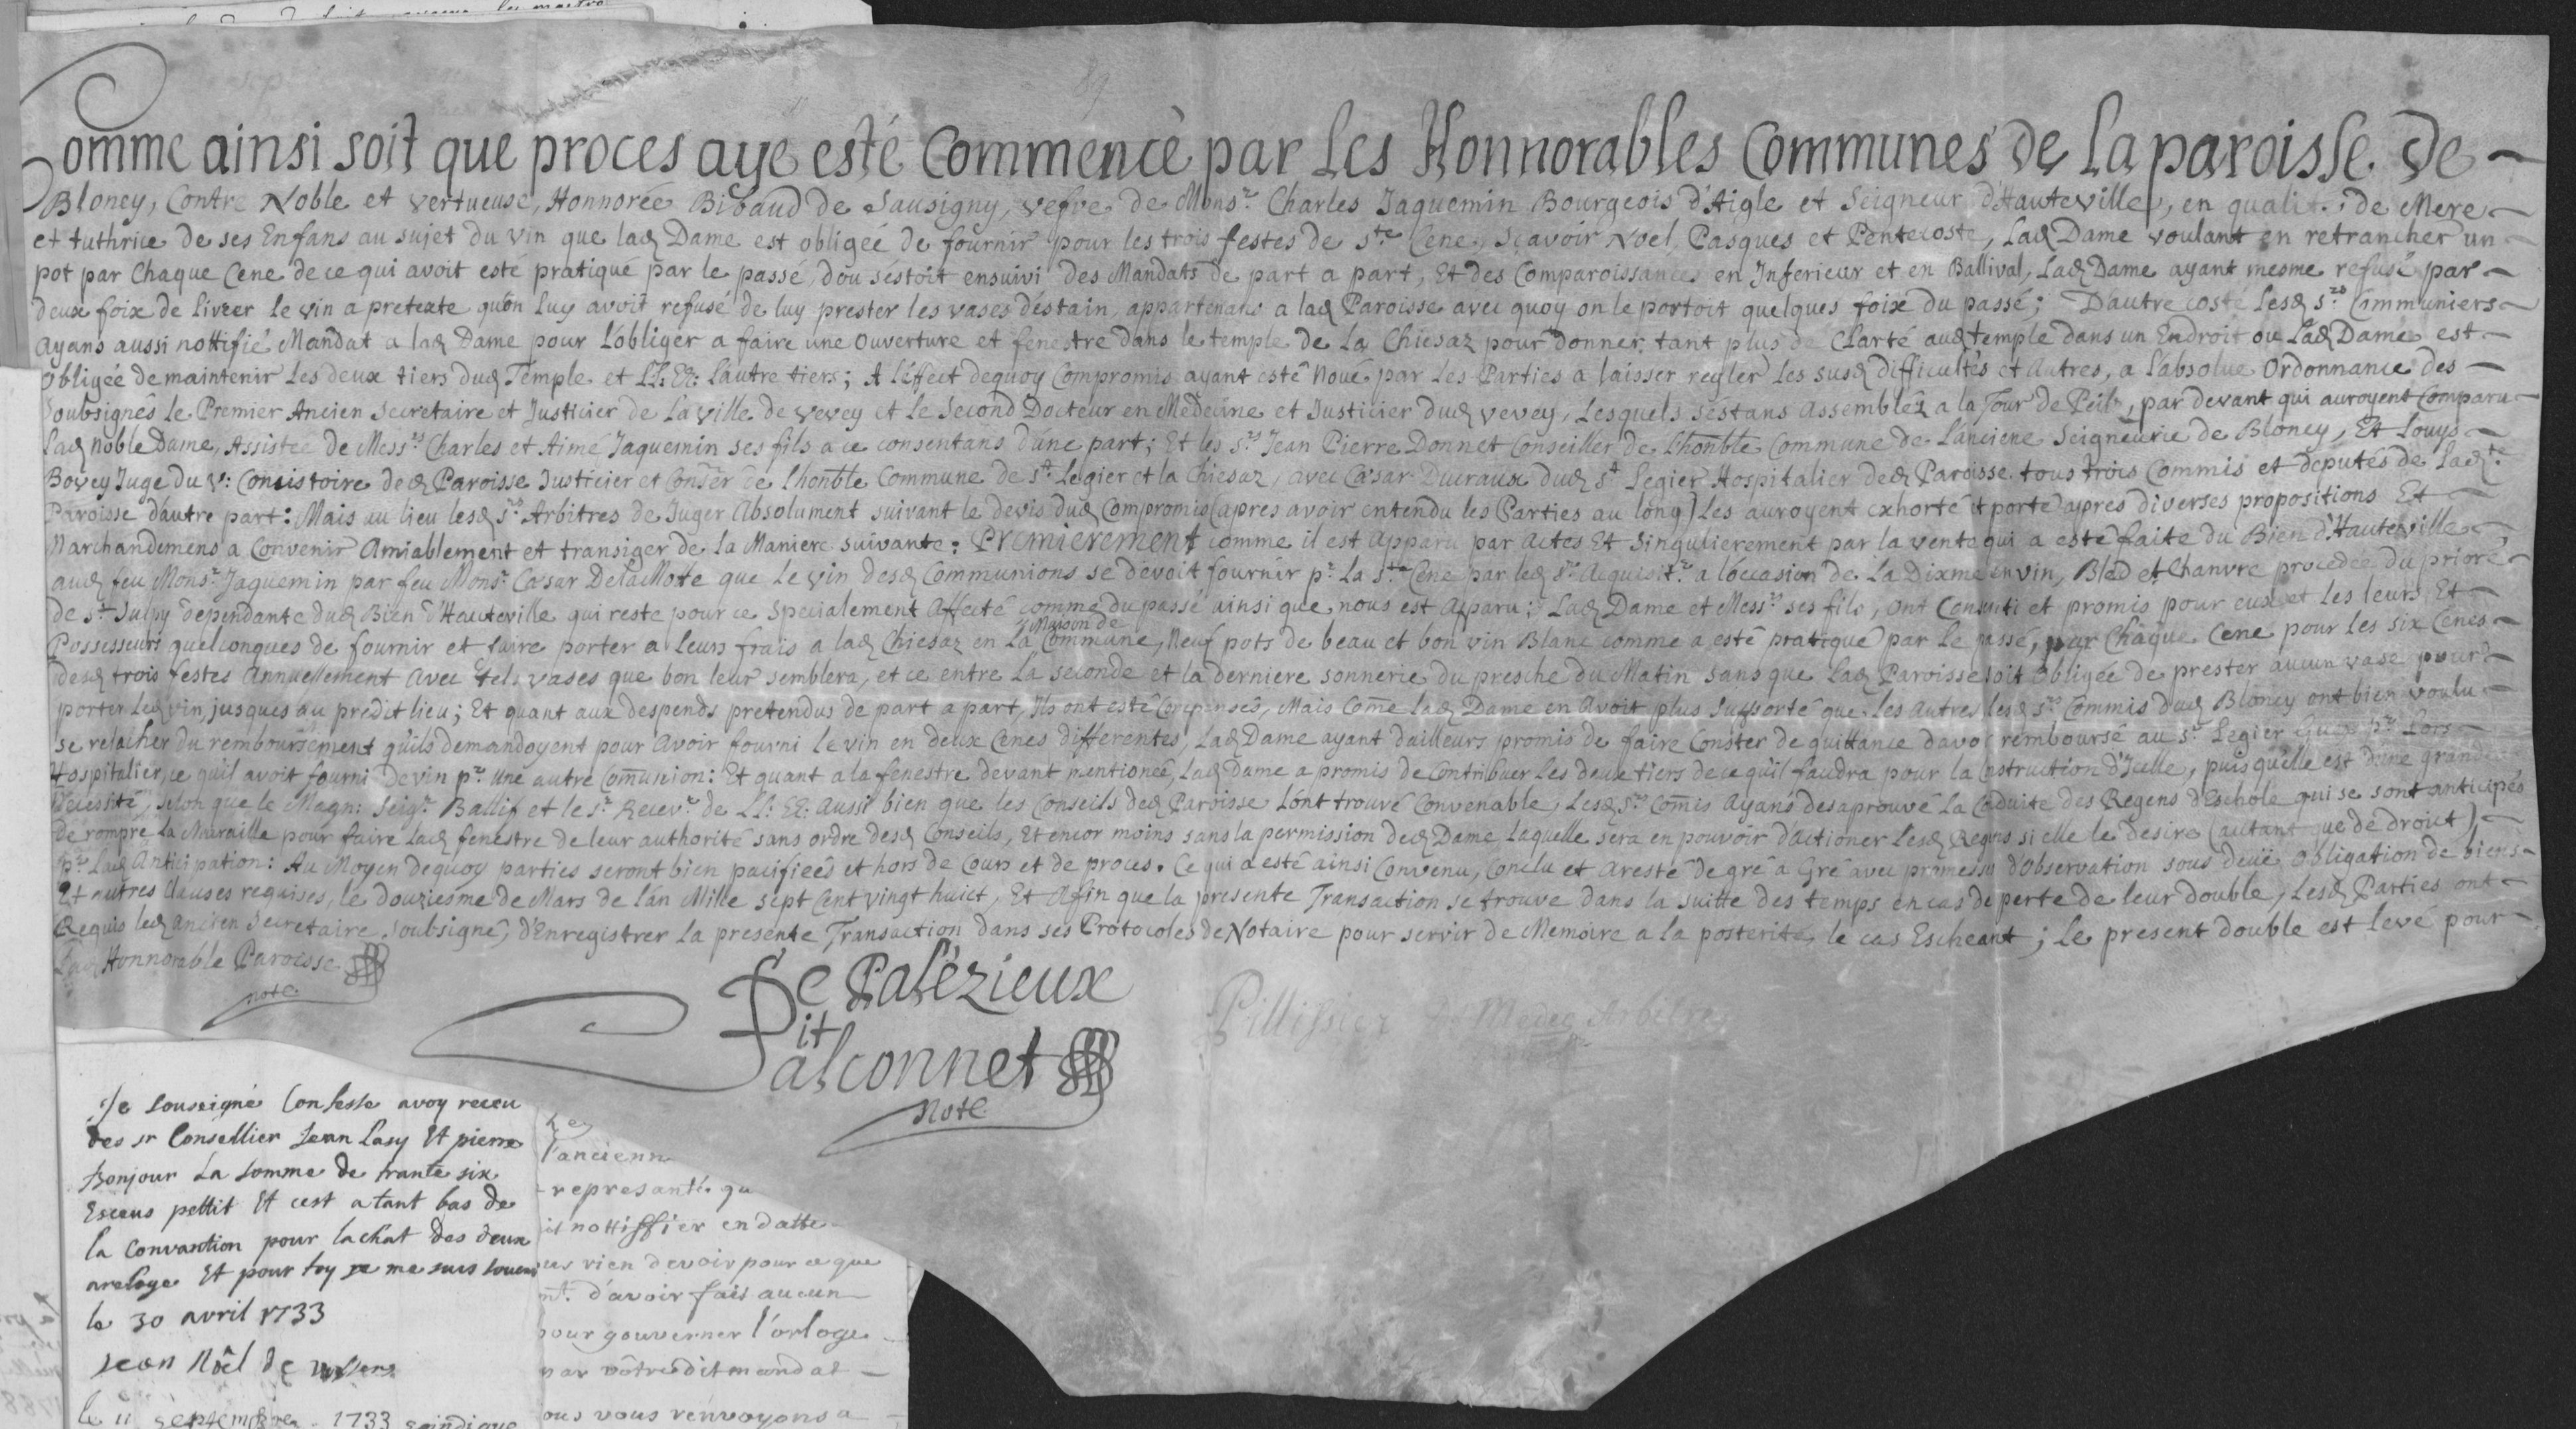 Comme ainsi soit que proces aye esté Commencè par Les Honnorables Communes de La paroisse de
Bloney, Contre Noble et vertueuse, Honnorée de Sausigny, vefve de Monsr. Charles Jaquemin Bourgeois d'Aigle et Seigneur d'Hauteville, en qualité de Mere
et tuthrice de ses Enfans au sujet du vin que lad Dame est obligée de fournir pour les trois festes de Ste Cene, Sçavoir Noel, Pasques et Pentecoste, Lad Dame voulant en retrancher un
pot par Chaque Cene de ce qui avoit esté pratiqué par le passé, dou séstoit ensuivi des Mandats de part a part, Et des Comparoissances en Inferieur et en Ballival, Lad Dame ayant mesme refusé par
deux foix de livrer le vin a pretexte quón luy avoit refusé de luy prester les vases déstain appartenans a lad Paroisse avec quoy on le portoit quelques foix du passé; D'autre costé lesd Srs Communiers
Ayans aussi nottifié Mandat a lad Dame pour L'obliger a faire une Ouverture et fenestre dans le temple de La Chiesaz pour donner tant plus de Clarté aud temple dans un Endroit ou Lad Dame est
Obligée de maintenir Les deux tiers dud Temple et LL: EE: Lautre tiers; A L'éfect dequoy Compromis ayant esté Noué par les Parties a laisser regler Les susd difficultés et Autres, a L'absolue Ordonnance des
Soubsignés le Premier Ancien Secretaire et Justicier de La ville de Vevey et le Second Docteur en Medecine et Justicier dud Vevey, Lesquels séstans Assemblés a la Tour de Peilz, par devant qui auroyent Comparu
Lad Noble Dame, Assistée de Messrs Charles et Aimé Jaquemin ses fils a ce consentans dúne part; Et les Srs Jean Pierre Donnet Conseiller de Lhonble Commune de L'anciene Seigneurie de Bloney, Et Louys
Bovey Juge du V: Consistoire ded Paroisse Justicier et Conser de Lhonble Commune de St Legier et la Chiesaz, avec Cæsar Ducraux dud St Legier Hospitalier ded Paroisse tous trois Commis et deputés de Ladte
Paroisse d'autre part: Mais au lieu lesd Srs Arbitres de Juger Absolument suivant le devis dud Compromis (apres avoir entendu les Parties au long) Les auroyent exhorté et porté apres diverses propositions Et
Marchandemens a Convenir Amiablement et transiger de La Maniere suivante: Premierement comme il est Apparu par Actes Et Singulierement par la vente qui a esté faite du Bien d'Hauteville
aud feu Monsr Jaquemin par feu Monsr Cæsar DelaMotte que Le vin desd Communions se devoit fournir pr La Ste Cene par led Sr Acquisitr a l'óccasion de La Dixme en vin, Bled et Chanvre procedée du prioré
de St Sulpy dependante dud Bien d'Hauteville qui reste pour ce Specialement Affecté comme du passé ainsi que nous est Apparu; Lad Dame et Messrs ses fils, ont Consenti et promis pour eux et les leurs Et
Maison de
Possesseurs quelconques de fournir et faire porter a Leurs frais a lad Chiesaz en La Commune, Neuf pots de beau et bon vin Blanc comme a esté pratiqué par le passé, pour Chaque Cene pour les six Cenes
desd trois festes Annuellement Avec tels vases que bon leur semblera, et ce entre La seconde et la derniere sonnerie du presche du Matin sans que Lad Paroisse soit Obligée de prester aucun vase pour
porter Led vin, jusques au predit lieu; Et quant aux despends pretendus de part a part, Ils ont esté Compensés, Mais Comme lad Dame en Avoit plus supporté que les Autres lesd Srs Commis dud Bloney ont bien voulu
se relacher du remboursement quils demandoyent pour Avoir fourni le vin en deux Cenes differentes, Lad Dame ayant dailleurs promis de faire Conster de quittance davoir remboursé au Sr Legier Guex pr Lors
Hospitalier, ce quíl avoit fourni de vin pr Une autre Comunion: Et quant a la fenestre devant mentionée, Lad Dame a promis de Contribuer Les deux tiers de ce quíl faudra pour la Construction d'Icelle, puis quélle est dúne grande
Necessité, selon que le Magn: Seigr Ballif et le Sr Recevr de LL: EE: aussi bien que les Conseils ded Paroisse Lónt trouvé Convenable, Lesd Srs Comis Ayans desaprouvé La Conduite des Regens d'Eschole qui se sont anticipés
de rompre La Muraille pour faire Lad fenestre de leur authorité sans ordre desd Conseils, Et encor moins sans la permission ded Dame, Laquelle sera en pouvoir d'actioner Lesd Regens si elle le desire (autant que de droit),
pr Lad Antiripation: Au Moyen dequoy parties seront bien pacifiées et hors de Cours et de proces. Ce qui a esté ainsi Convenu, Conclu et Aresté de gré a Gré avec promesses d'Observation sous deüe Obligation de biens
Et autres clauses requises, le douziesme de Mars de Lán Mille sept Cent vingt huict, Et Afin que la presente Transaction se trouve dans la suitte des temps en cas de perte de leur double, Lesd Parties ont
Requis led ancien Secretaire soubsigné, d'Enregistrer La presente Transaction dans ses Protocoles de Notaire pour servir de Memoire a la posterité le cas Escheant; Le present double est levé pour
Lad Honnorable Paroisse
note
De Palézieux
Dit
Falconnet
Note
Pillissier Arbitre
Je souseigné Confesse avoy receu
des sr Consellier Jean Lasy Et pierre
bonjour La somme de trante six
Esceus pettit Et cest a tant bas de
la Convantion pour lachat des deux
areloge Et pour foy je me suis
le 30 avril 1733
Jean Nöel de
le 11 septembre 1733
l'ancienn
represanté qu
nottiffier en datte
rien devoir pour ce que
d'avoir fais aucun
pour gouverner l'orloge
par vôtredit mandat
ous vous renvoyons a